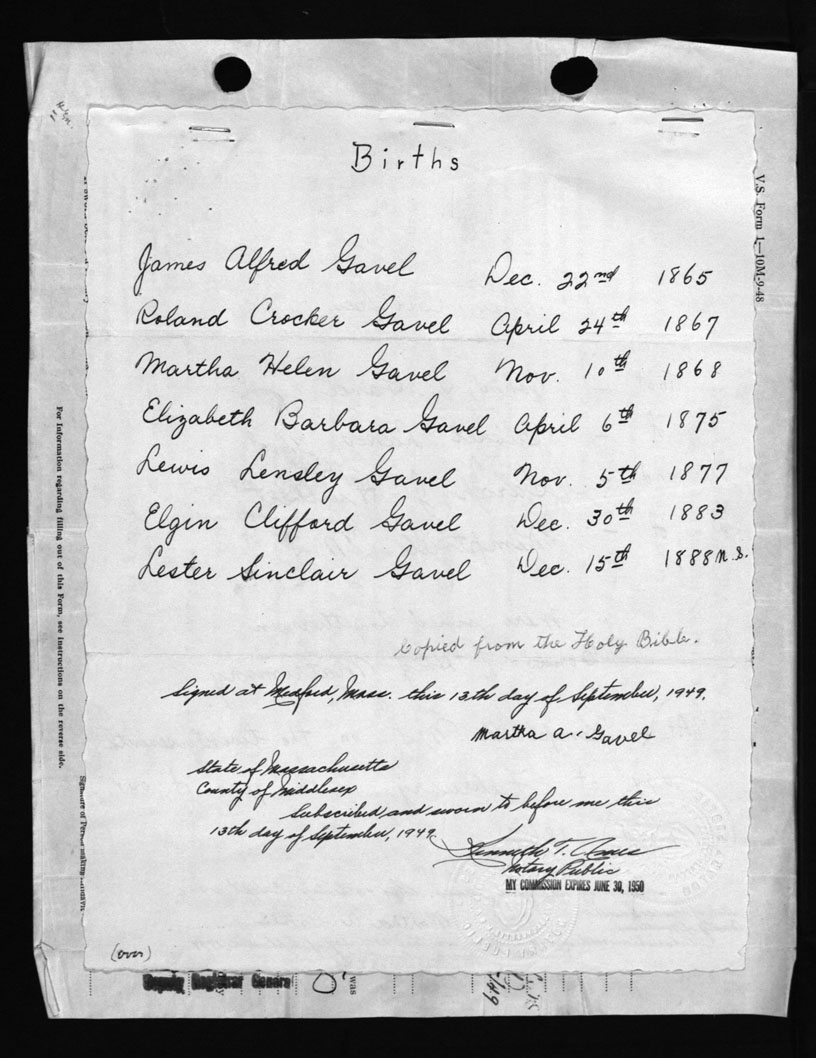 Births
James Alfred Gavel Dec. 22nd 1865
Roland Crocker Gavel April 24th 1867
Martha Helen Gavel Nov. 10th 1868
Elizabeth Barbara Gavel April 6th 1875
Lewis Lensley Gavel Nov. 5th 1877
Elgin Clifford Gavel Dec. 30th 1883
Lester Sinclair Gavel Dec. 15th 1888 N.S.
Copied from the Holy Bible.
Signed at Medford, Mass. this 13th day of September, 1949.
Martha A. Gavel
State of Massachusetts
County of Middlesex
Subscribed and sworn to before me this
13th day of September, 1949.
Kenneth T.
Notary Public
MY COMMISSION EXPIRES JUNE 30, 1950
(over)
Deputy Registrar General
was
V.S. Form 1—10M-9-48
For Information regarding filling out of this Form, see instructions on the reverse side.
Signature of Person making